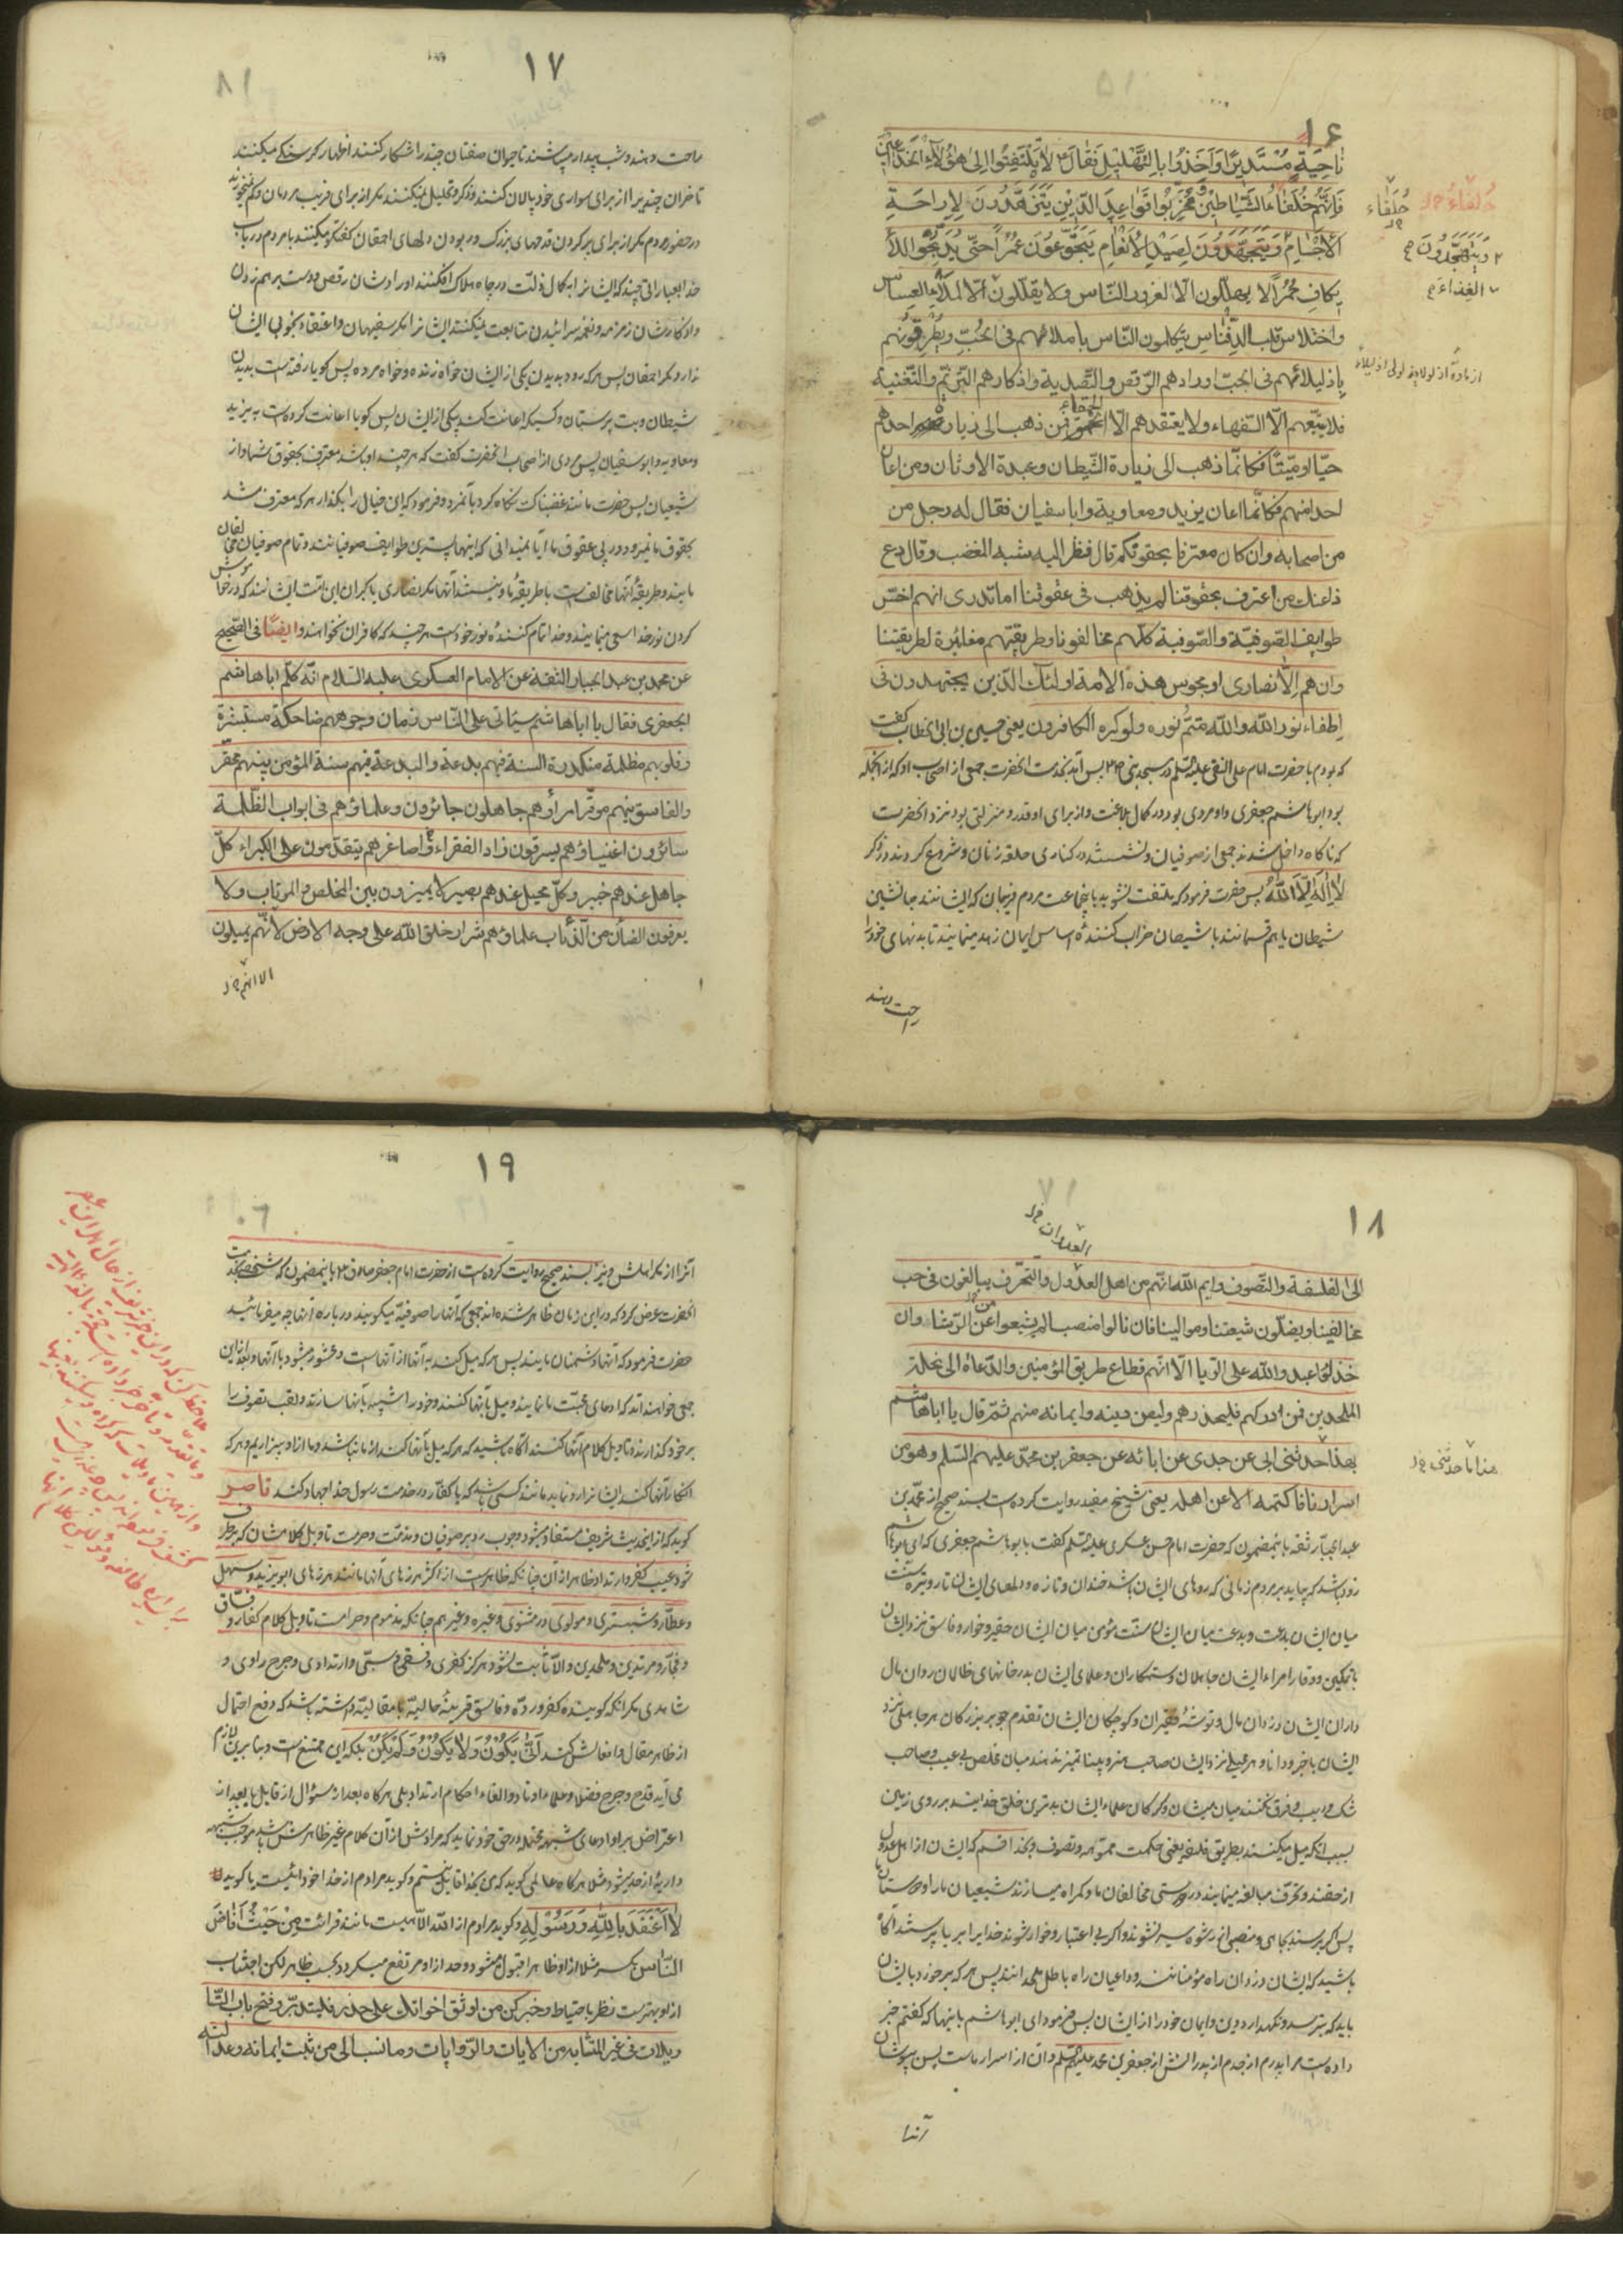 ١۶
ناحية مستديرا واخذوا بالتهليل فقال ع لا يلتفتوا الى هؤلاء الخداعين
فانهم خلفاء الشياطين ومخربوا قواعد الدين يتزهدون لاراحة
الاجسام ويتهجدون لصيد الانعام يتجوعون عمرا حتى يديخوا للا
يكاف حمرا لا يهللون الا لغرور الناس ولا يقللون الا لملاء العساس
واختلاس قلب الدفناس يتكلمون الناس باملائهم فى الحب ويطرقونهم
باذليلائهم فى الجب اورادهم الرقص والتصدية واذكارهم الترنم والتغنية
فلا يتبعهم الا السفهاء ولا يعتقدهم الا الحمقاء فمن ذهب الى زيارة احدهم
حيا او ميتا فكانما ذهب الى زيارة الشيطان وعبدة الاوثان ومن اعان
احدا منهم فكانما اعان يزيد ومعاوية وابا سفيان فقال له رجل من
من اصحابه وان كان معترفا بحقوقكم قال فنظر اليه شبه المغضب وقال دع
ذا عنك من اعترف بحقوقنا لم يذهب فى عقوقنا اما تدرى انهم اخس
طوايف الصوفية والصوفية كلهم مخالفونا وطريقتهم مغايرة لطريقتنا
وان هم الا نصارى او مجوس هذه الامة اولئك الذين يجتهدون فى
اطفاء نور الله والله متم نوره ولو كره الكافرون يعنى حسين بن ابى الخطاب كفت
كه بودم با حضرت امام على النقى عليه السلم در مسجد نبى ص پس آمد بخدمت انحضرت جمعى از اصحاب او كه از انجمله
بود ابو هاشم جعفرى واو مردى بود در كمال بلاغت واز براى او قدر ومنزلتى بود نزد انحضرت
كه ناكاه داخل شدند جمعى از صوفيان ونشستند در كنارى حلقه زنان وشروع كردند در ذكر
لا اله الا الله پس حضرت فرمود كه ملتفت نشويد باينجماعت مردم فريبان كه ايشانند جانشين
شيطان يا هم قسمانند با شيطان خراب كننده اساس ايمان زهد مينمايند تا بدنهاى خود را
راحت دهند
خلفاء
حلفاء
ويتهجدون
الغذاء
١٧
راحت دهند وشب بيدار ميباشند تا حيوان صفتان چند را شكار كنند اظهار كرسنكى ميكنند
تا خران چند را از براى سوارى خود پالان كنند وذكر وتهليل نميكنند مكر از براى فريب مردمان وكم نميخورند
در حضور مردم مكر از براى پر كردن قدحهاى بزرك وربودن دلهاى احمقان كفتكو ميكنند با مردم در باب
خدا بعباراتى چند كه ايشانرا به كمال ذلت در چاه هلاك افكنند اورادشان رقص ودست برهم زدن
واذكارشان زمزمه ونغمه سرائيدن متابعت نميكنند ايشانرا مكر سفيهان واعتقاد بخوبى ايشان
ندارد مكر احمقان پس هر كه رود بديدن يكى از ايشان خواه زنده وخواه مرده پس كويا رفته است بديدن
شيطان وبت پرستان وكسيكه اعانت كند يكى از ايشان پس كويا اعانت كرده است به يزيد
ومعاويه وابو سفيان پس مردى از اصحاب انحضرت كفت كه هر چند او باشد معترف بحقوق شما واز
شيعيان پس حضرت مانند غضبناك نكاه كرد بآنمرد وفرمود كه اين خيال را بكذار هر كه معترف شد
بحقوق ما نميرود در پى عقوق ما آيا نميدانى كه اينها پستترين طوايف صوفيانند وتمام صوفيان مخالفان
مايند وطريقه آنها مخالفست با طريقه ما ونيستند آنها مكر نصارى يا كبران اين امت ايشانند كه در خاموش
كردن نور خدا سعى مينمايند وخدا تمام كننده نور خود است هر چند كه كافران نخواهند وايضا فى الصحيح
عن محمد بن عبد الجبار الثقة عن الامام العسكرى عليه السلام انه كلم ابا هاشم
الجعفرى فقال يا ابا هاشم سياتى على الناس زمان وجوههم ضاحكة مستبشرة
وقلوبهم مظلمة منكدرة السنة فيهم بدعة والبدعة فيهم سنة المؤمن بينهم محقر
والفاسق بينهم موقر امراؤهم جاهلون جائرون وعلماؤهم فى ابواب الظلمة
سائرون اغنياؤهم يسرقون زاد الفقراء واصاغرهم يتقدمون على الكبراء كل
جاهل عندهم خبير وكل محيل عندهم بصير لا يميزون بين المخلص والمرتاب ولا
يعرفون الضأن من الذئاب علماؤهم شرار خلق الله على وجه الارض لانهم يميلون
الا انهم
١٨
العدوان
الى الفلسفة والتصوف وايم الله انهم من اهل العدول والتحرف يبالغون فى حب
مخالفينا ويضلون شيعتنا وموالينا فان نالوا منصبا لم يشبعوا عن الرشاء وان
خذلوا عبدوا الله على الريا الا انهم قطاع طريق المؤمنين والدعاة الى نحلة
الملحدين فمن ادركهم فليحذرهم وليصن دينه وايمانه منهم ثم قال يا ابا هاشم
بهذا حدثنى ابى عن جدى عن ابائه عن جعفر بن محمد عليهم السلم وهو من
اسرارنا فاكتمه الا عن اهله يعنى شيخ مفيد روايت كرده است بسند صحيح از محمد بن
عبد الجبار ثقه باينمضمون كه حضرت امام حسن عسكرى عليه السلم كفت با بو هاشم جعفرى كه اى ابو هاشم
زود باشد كه بيايد بر مردم زمانى كه روهاى ايشان باشد خندان وتازه ودلهاى ايشان تار وتيره سنت
ميان ايشان بدعت وبدعت ميان ايشان سنت مؤمن ميان ايشان حقير وخوار وفاسق نزد ايشان
با تمكين ووقار امراء ايشان جاهلان وستمكاران وعلماى ايشان بدرخانهاى ظالمان روان مال
داران ايشان دزدان مال وتوشه فقيران وكوچكان ايشان تقدم جو بر بزركان هر جاهلى نزد
ايشان باخبر ودانا وهر محيلى نزد ايشان صاحب هنر وبينا تميز ندهند ميان مخلص بى عيب وصاحب
شك وريب وفرق نكنند ميان ميشان وكركان علماء ايشان بدترين خلق خدايند بر روى زمين
بسبب انكه ميل ميكنند بطريق فلسفه يعنى حكمت مموهه وتصوف وبخدا قسم كه ايشان از اهل عدول
از حقند وتحرف مبالغه مينمايند در دوستى مخالفان ما وكمراه ميسازند شيعيان ما را ودوستان ما
پس اكر برسند بجاهى ومنصبى از رشوه سير نشوند واكر بى اعتبار وخوار شوند خدا را بريا پرستند آكاه
باشيد كه ايشان دزدان راه مؤمنانند وداعيان راه باطل ملحدانند پس هر كه بر خورد بايشان
بايد كه بترسد ونكهدارد دين وايمان خود را از ايشان پس فرمود اى ابو هاشم باينها كه كفتم خبر
داده است مرا پدرم از جدم از پدرانش از جعفر بن محمد عليهم السلم وان از اسرار ماست پس بپوشان
آنرا
هذا ما حدثنى
١٩
آنرا از مكر اهلش ونيز بسند صحيح روايت كرده است از حضرت امام جعفر صادق ع باينمضمون كه شخصى بخدمت
انحضرت عرض كرد كه در اين زمان ظاهر شده اند جمعى كه آنها را صوفيه ميكويند در باره آنها چه ميفرمائيد
حضرت فرمود كه آنها دشمنان مايند پس هر كه ميل كند به آنها از آنهاست ومحشور ميشود با آنها وبعد از اين
جمعى خواهند آمد كه ادعاى محبت ما نمايند وميل بآنها كنند وخود را شبيه بآنها سازند ولقب تصوف را
بر خود كذارند وتاويل كلام آنها كنند آكاه باشيد كه هر كه ميل بآنها كند از ما نباشد وما از او بيزاريم وهر كه
انكار آنها كند ايشانرا رد نمايد مانند كسى باشد كه با كفار در خدمت رسول خدا جهاد كند قاصر
كويد كه از اينحديث شريف مستفاد ميشود وجوب رد بر صوفيان ومذمت وحرمت تاويل كلامشان كه بر طرف
شود عيب كفر وارتداد ظاهر از آن چنانكه ظاهر است از اكثر هرزهاى آنها مانند هرزهاى ابو يزيد وسهل
وعطار وشبسترى ومولوى در مثنوى وغيره وغيرهم چنانكه مذموم وحرامست تاويل كلام كفار وفساق
وفجار ومرتدين وملحدين والا ثابت نشود هركز كفرى وفسقى وسبى وارتدادى وجرح راوى و
شاهدى مكر انكه كوينده كفر ورده وفاسق قرينه حاليه يا مقاليه داشته باشد كه دفع احتمال
از ظاهر مقال وافعالش كند انى يكون ولا يكون ولم يكن بلكه اين ممتنع است وبنا برين لازم
مى آيد قدح وجرح فضلا وعلماء اوتاد والغاء احكام ارتداد بلى هركاه بعد از سؤال از قايل يا بعد از
اعتراض بر او ادعاى شبهه محتمله در حق خود نمايد كه مرادش از آن كلام غير ظاهرش باشد موجب شبهه
دارئه از حد ميشود مثلا هركاه عالمى كويد كه من بخدا قايل نيستم وكويد مرادم از خدا خود آئيست يا كويد
لا اعتقد بالله ورسوله وكويد مرادم از الله الاهيست مانند قرائت من حيث افاض
الناس بكسر مثلا از او ظاهرا قبول ميشود وحد از او مرتفع ميكردد بحسب ظاهر لكن اجتناب
از او بهتر است نظر باحتياط وخبر كن من اوثق اخوانك على حذر فليتدبر وفتح باب التا
ويلات فى غير المتشابه من الايات والروايات وما نسب الى من ثبت ايمانه وعدالته